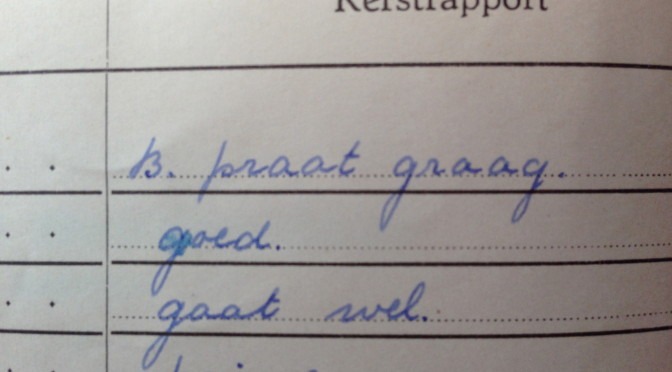 Kerstrapport
B. praat graag.
goed.
gaat wel.